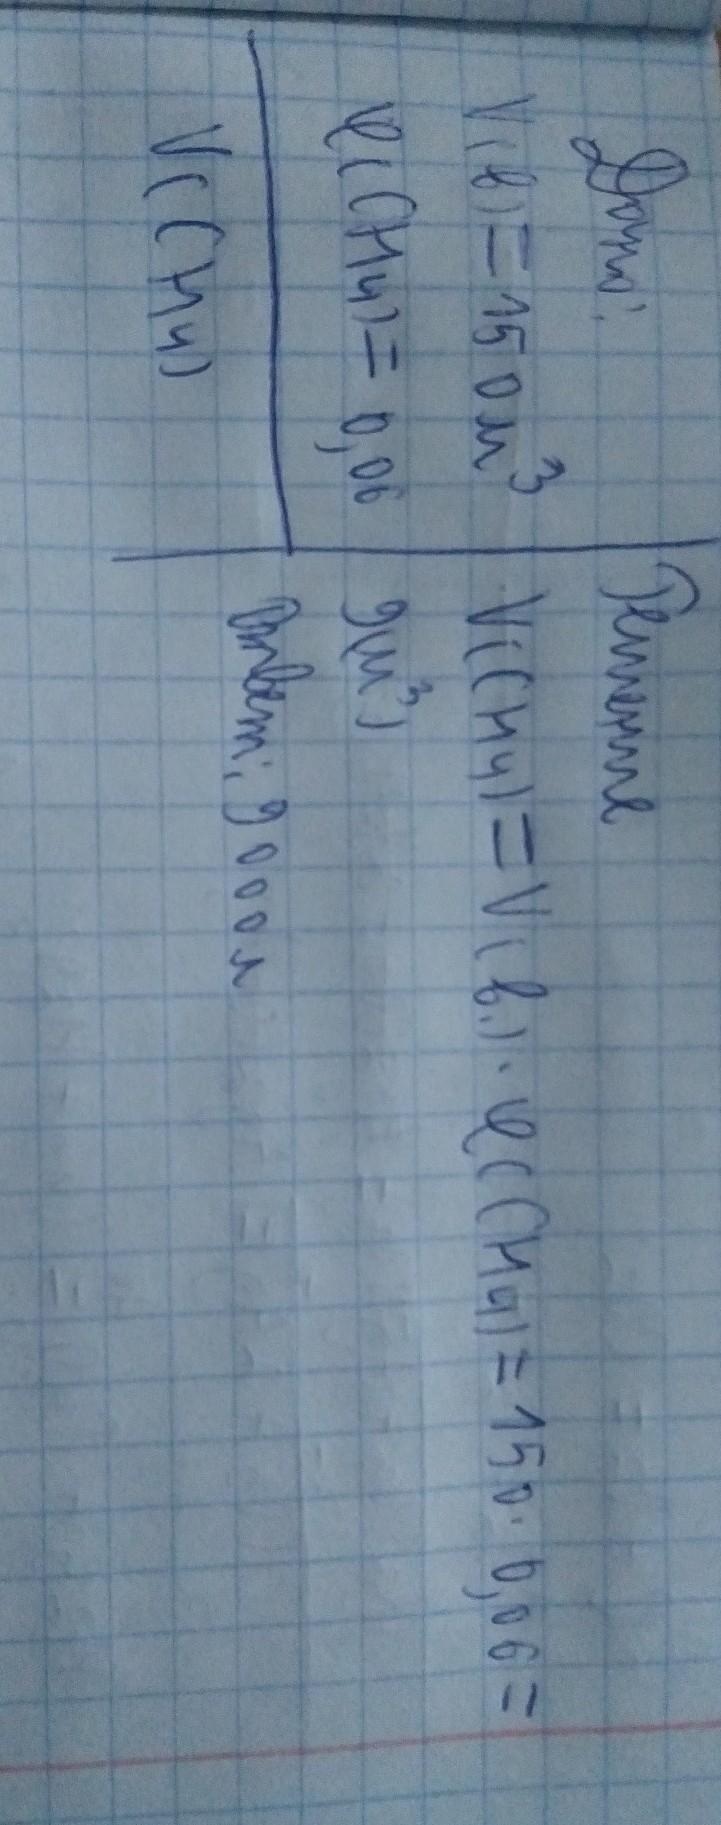 Дано:
V(в)=150м³
φ(CH4)=0,06
V(CH4)
Решение
V(CH4)=V(в.)·φ(CH4)=150·0,06=
9(м³)
Ответ: 9000л